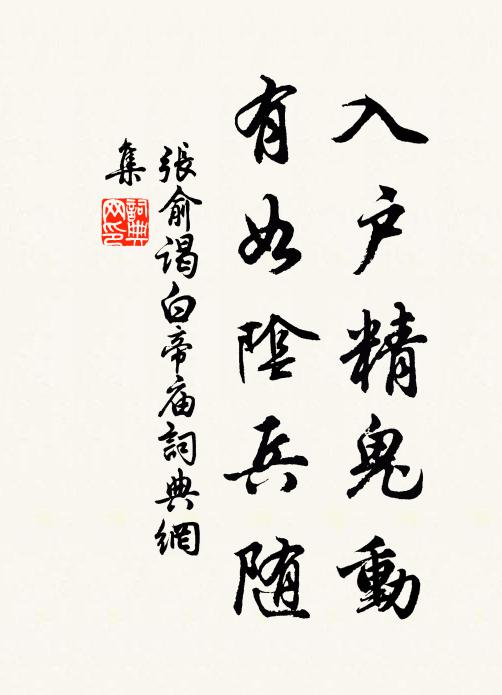 入户精鬼動
有如陰兵随
張俞謁白帝庙詞典網
集
詞典
网印